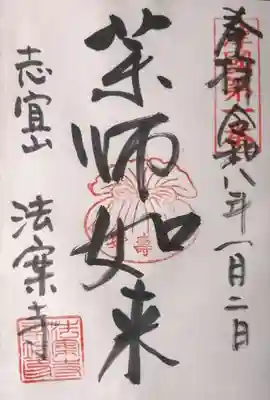 奉拝 令和八年一月二日
薬師如来
志宜山 法案寺
壽